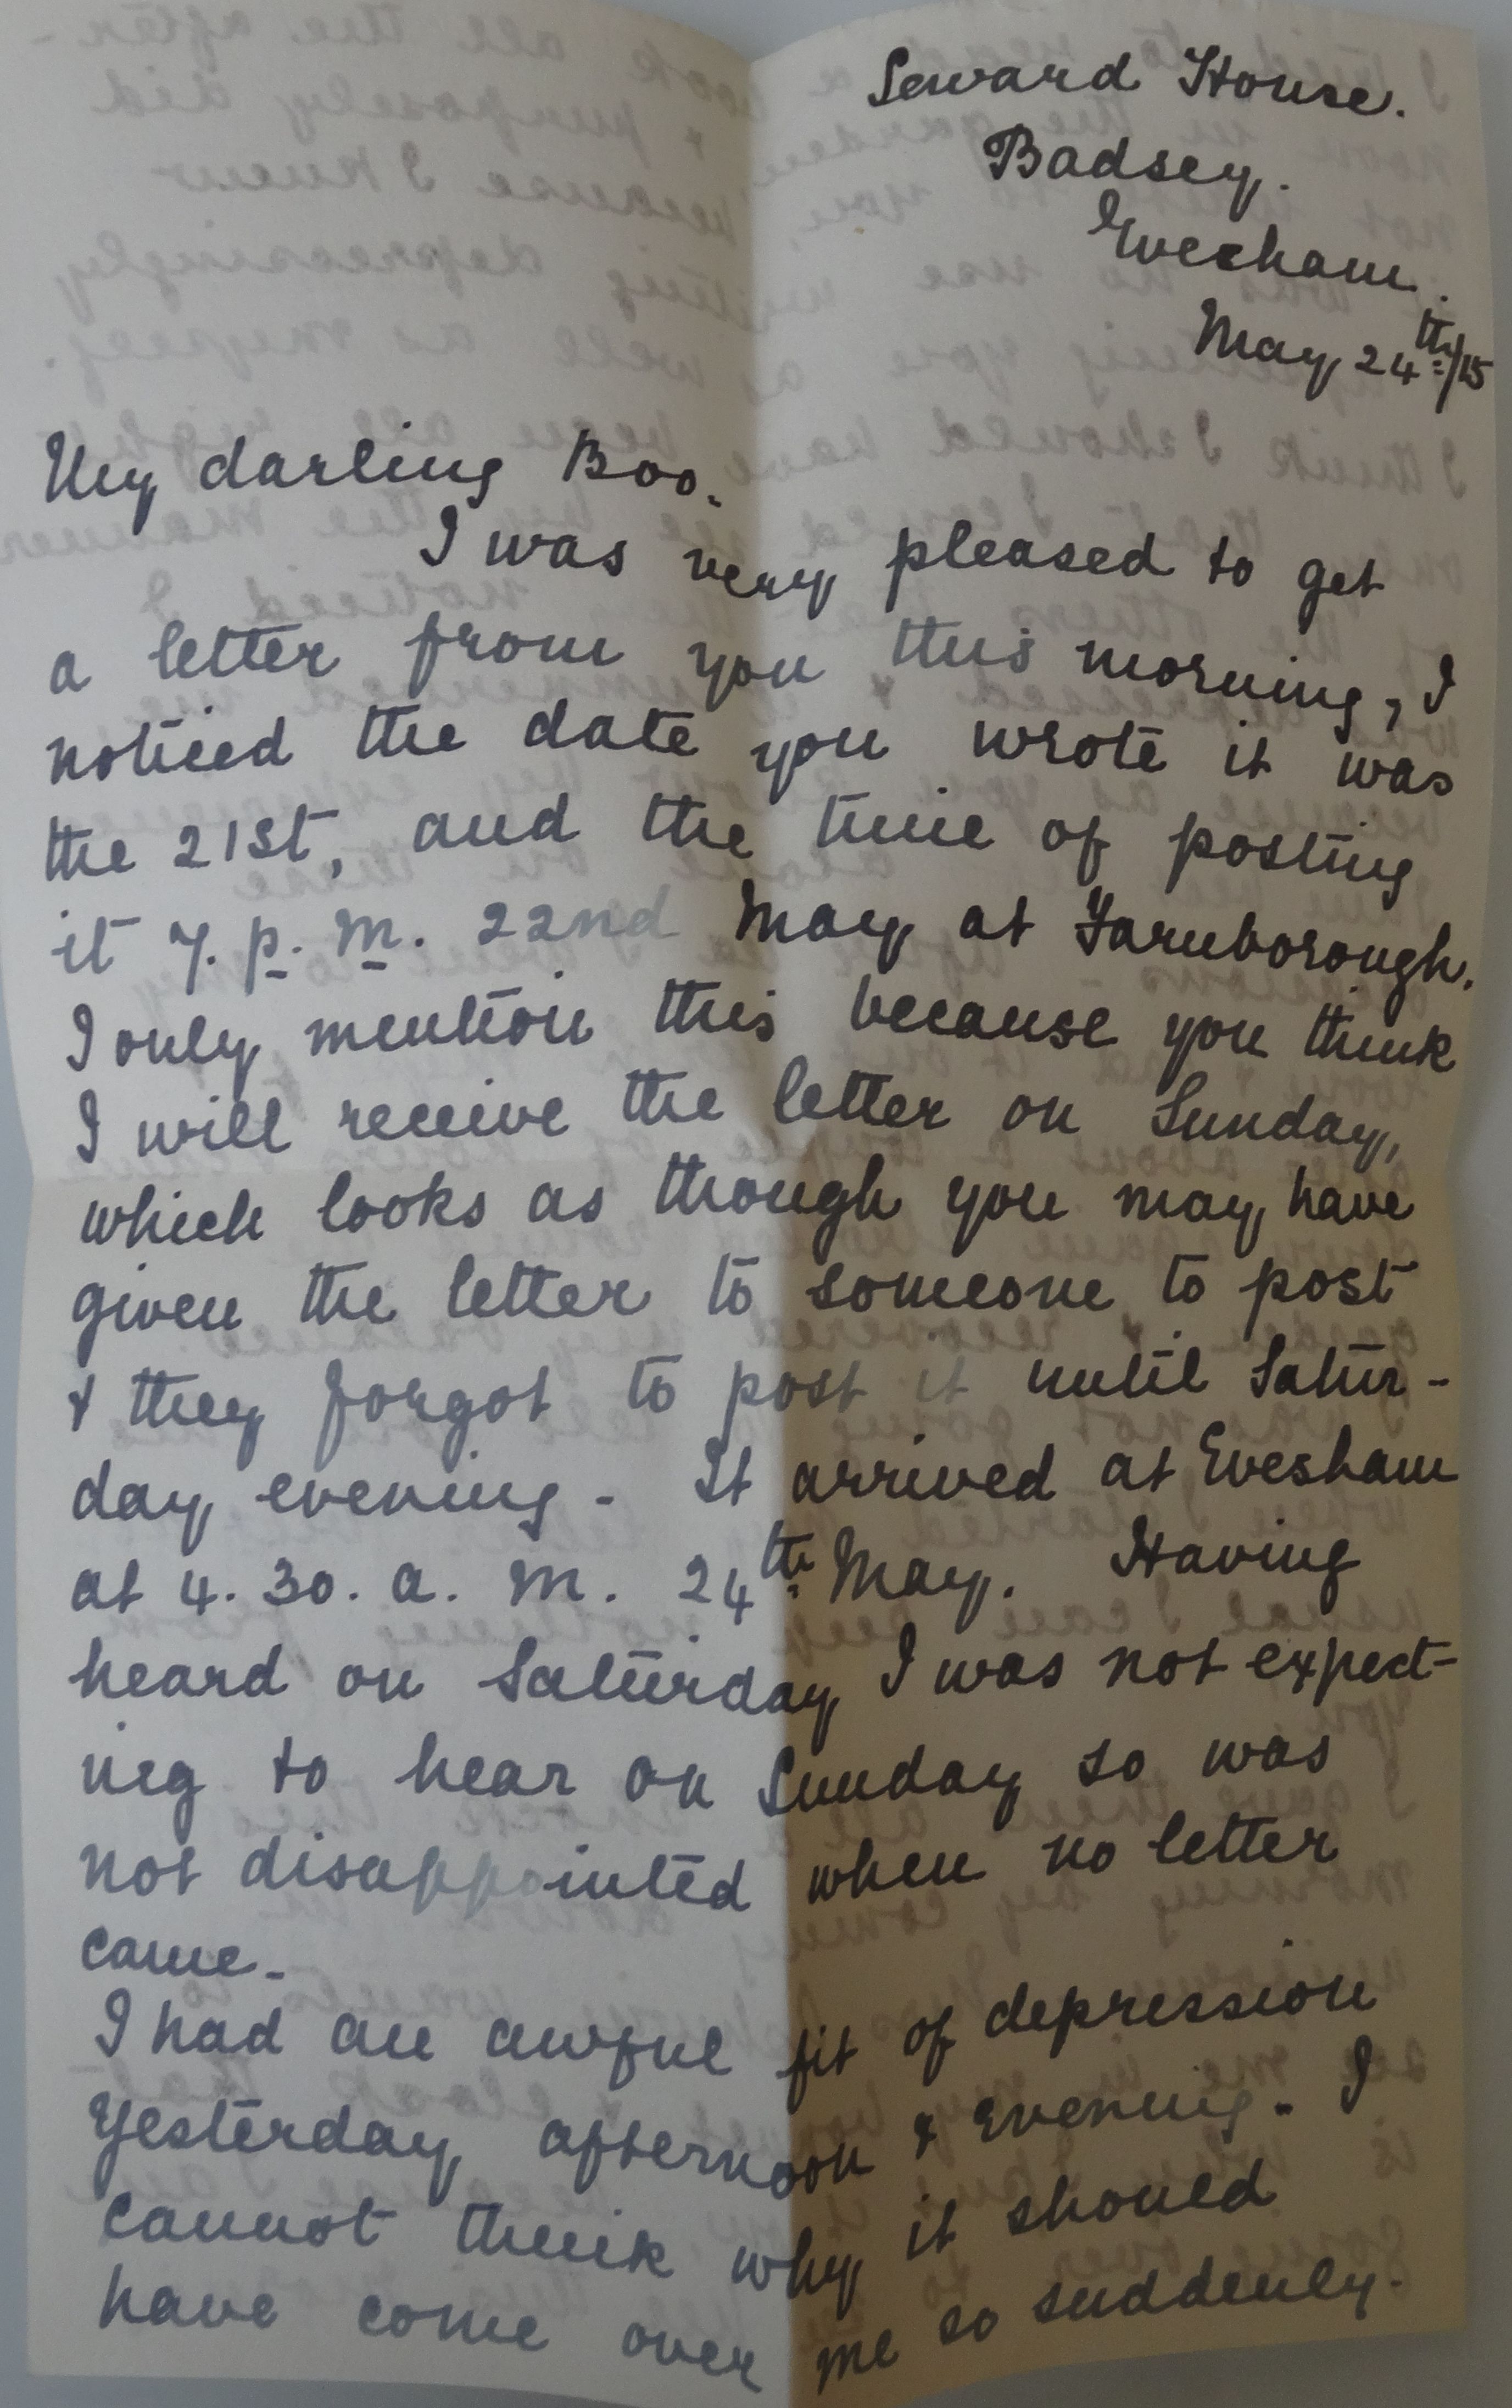 Seward House.
Badsey.
Evesham.
May 24th/15
My darling Boo.
I was very pleased to get
a letter from you this morning, I
noticed the date you wrote it was
the 21st, and the time of posting
it 7. p. m. 22nd May at Farnborough.
I only mention this because you think
I will receive the letter on Sunday,
which looks as though you may have
given the letter to someone to post
& they forgot to post it until Satur-
day evening - It arrived at Evesham
at 4. 30. a. m. 24th May. Having
heard on Saturday I was not expect-
ing to hear on Sunday so was
not disappointed when no letter
came -
I had an awful fit of depression
Yesterday afternoon & evening - I
cannot think why it should
have come over me so suddenly.